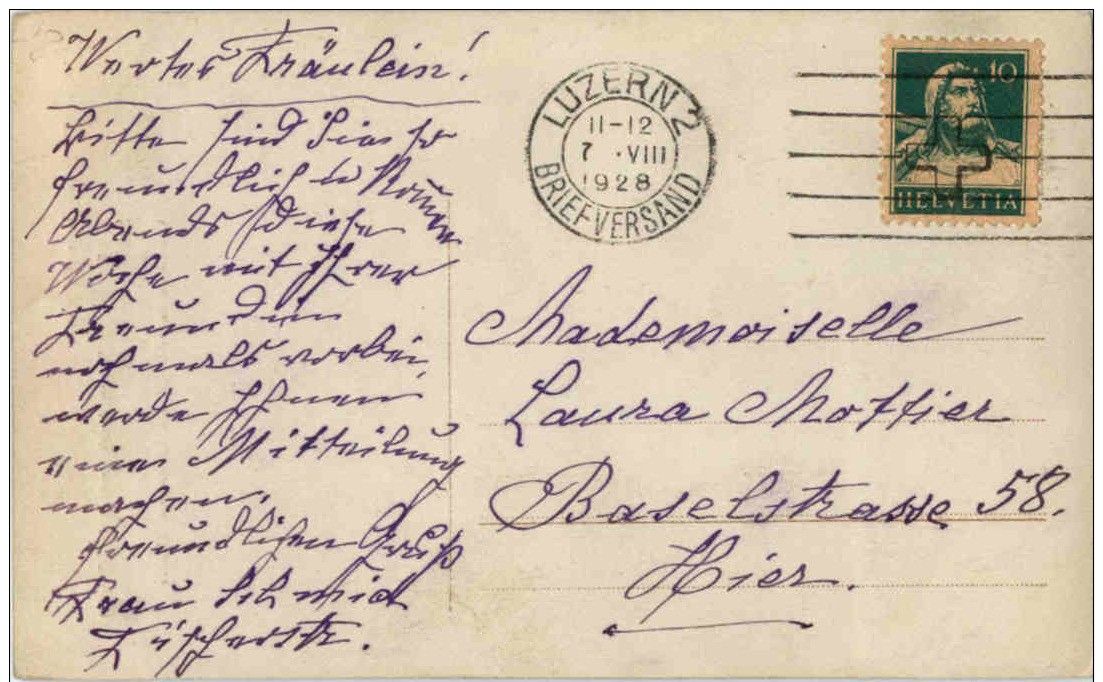 Wertes Fräulein!
Bitte sind Sie so
freundlich u kommen
Abends diese
Woche mit Ihrer
Freundin
nochmals vorbei,
werde Ihnen
eine Mitteilung
machen.
Freundlichen Gruß
Frau Schmid
LUZERN 2
11-12
7. VIII
1928
BRIEFVERSAND
10
HELVETIA
Mademoiselle
Laura Mottier
Baselstrasse 58.
Hier.